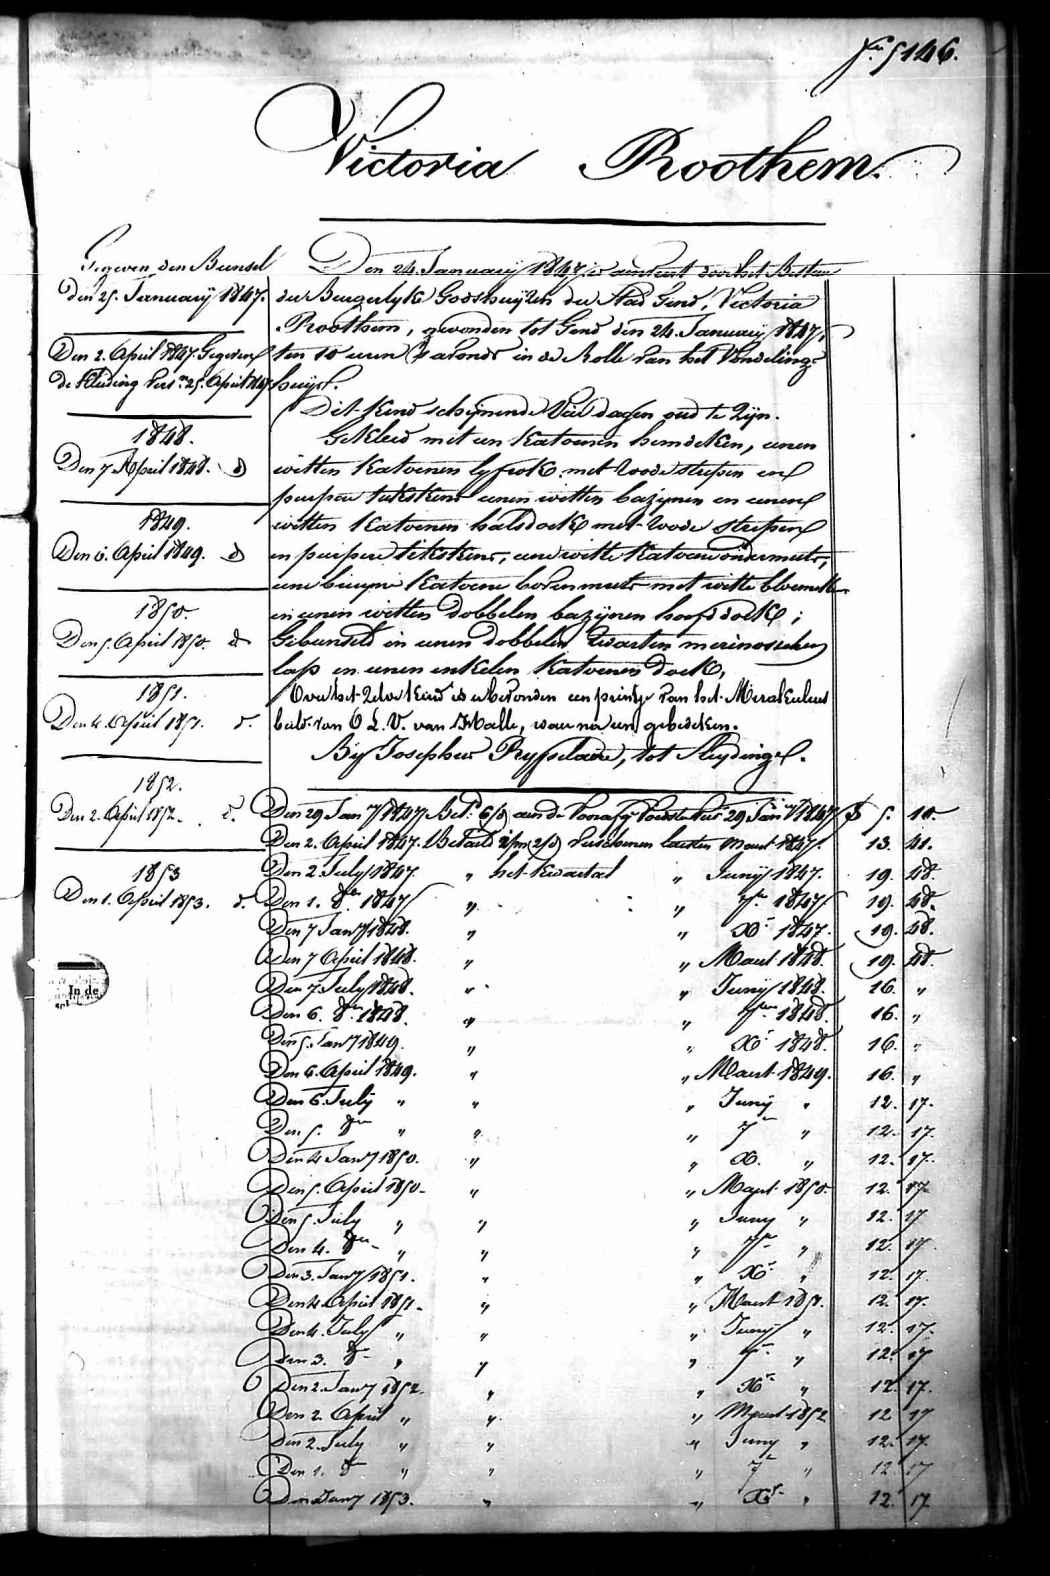 5146.
Victoria Roothem.
Gegeven den Bunsel
den 25. January 1847.
Den 2. April 1847. Gegeven
de kleeding vers. 25. April 1847.
1848.
Den 7. April 1848. d
1849.
Den 6. April 1849. d
1850.
Den 5. April 1850. d
1851.
Den 4. April 1851. d.
1852.
Den 2. April 1852. d.
1853
Den 1. April 1853. d.
In de
Den 24. January 1847, is aenveert door het Bestuer
der Burgerlyke Godshuyzen der Stad Gend, Victoria
Roothem, gevonden tot Gend den 24. January 1847,
ten 10 uren 's avonds in de Rolle van het Vondeling-
huys.
Dit kind schynende vier dagen oud te zyn.
Gekleed met een katoenen hemdeken, eenen
witten katoenen lyfrok met roode strepen en
purpere tikskens eenen witten bazynen en eenen
witten katoenen halsdoek met roode strepen
en purpere tikskens, eene witte katoene ondermuts,
eene bruyne katoene bovenmuts met witte bloemen
en eenen witten dobbelen bazynen hoofddoek;
Gebunseld in eenen dobbelen zwarten merinoschen
lap en eenen enkelen katoenen doek,
Over het zelve kind is er bevonden een printje van het Mirakuleus
beeld van O L. V. van Halle, waer na een gebedeken.
By Josephus Ryfselaere, tot Sleydinge.
Den 29 Jan.y 1847 Bet. aen de Voorsz. Voedster 29 Jan.y 1847 5. 10.
Den 2. April 1847. Betaeld verschenen laesten Maert 1847. 13. 41.
Den 2. July 1847. " het kwartael " Juny 1847. 19. 48.
Den 1. 8er 1847 " " 7er 1847 19. 48.
Den 7 Jan.y 1848. " " Xr 1847. 19. 48.
Den 7 April 1848. " " Maert 1848. 19. 48.
Den 7. July 1848. " " Juny 1848. 16. "
Den 6. 8er 1848. " " 7er 1848. 16. "
Den 5. Jan.y 1849. " " Xr 1848. 16. "
Den 6. April 1849. " " Maert 1849. 16. "
Den 6. July " " " Juny " 12. 17.
Den 5. 8er " " " 7er " 12. 17.
Den 4 Jan.y 1850. " " X. " 12. 17.
Den 5. April 1850. " " Maert 1850. 12. 17
Den 5. July " " " Juny " 12. 17
Den 4. 8er " " " 7er " 12. 17
Den 3. Jan.y 1851. " " Xr " 12. 17.
Den 4. April 1851. " " Maert 1851. 12. 17.
Den 4. July " " " Juny " 12. 17.
Den 3. 8er " " " 7er " 12. 17
Den 2. Jan.y 1852. " " Xr " 12. 17.
Den 2. April " " " Maert 1852 12 17
Den 2. July " " " Juny " 12. 17.
Den 1. 8er " " " 7er " 12 17
Den Jan.y 1853. " " Xr " 12. 17.